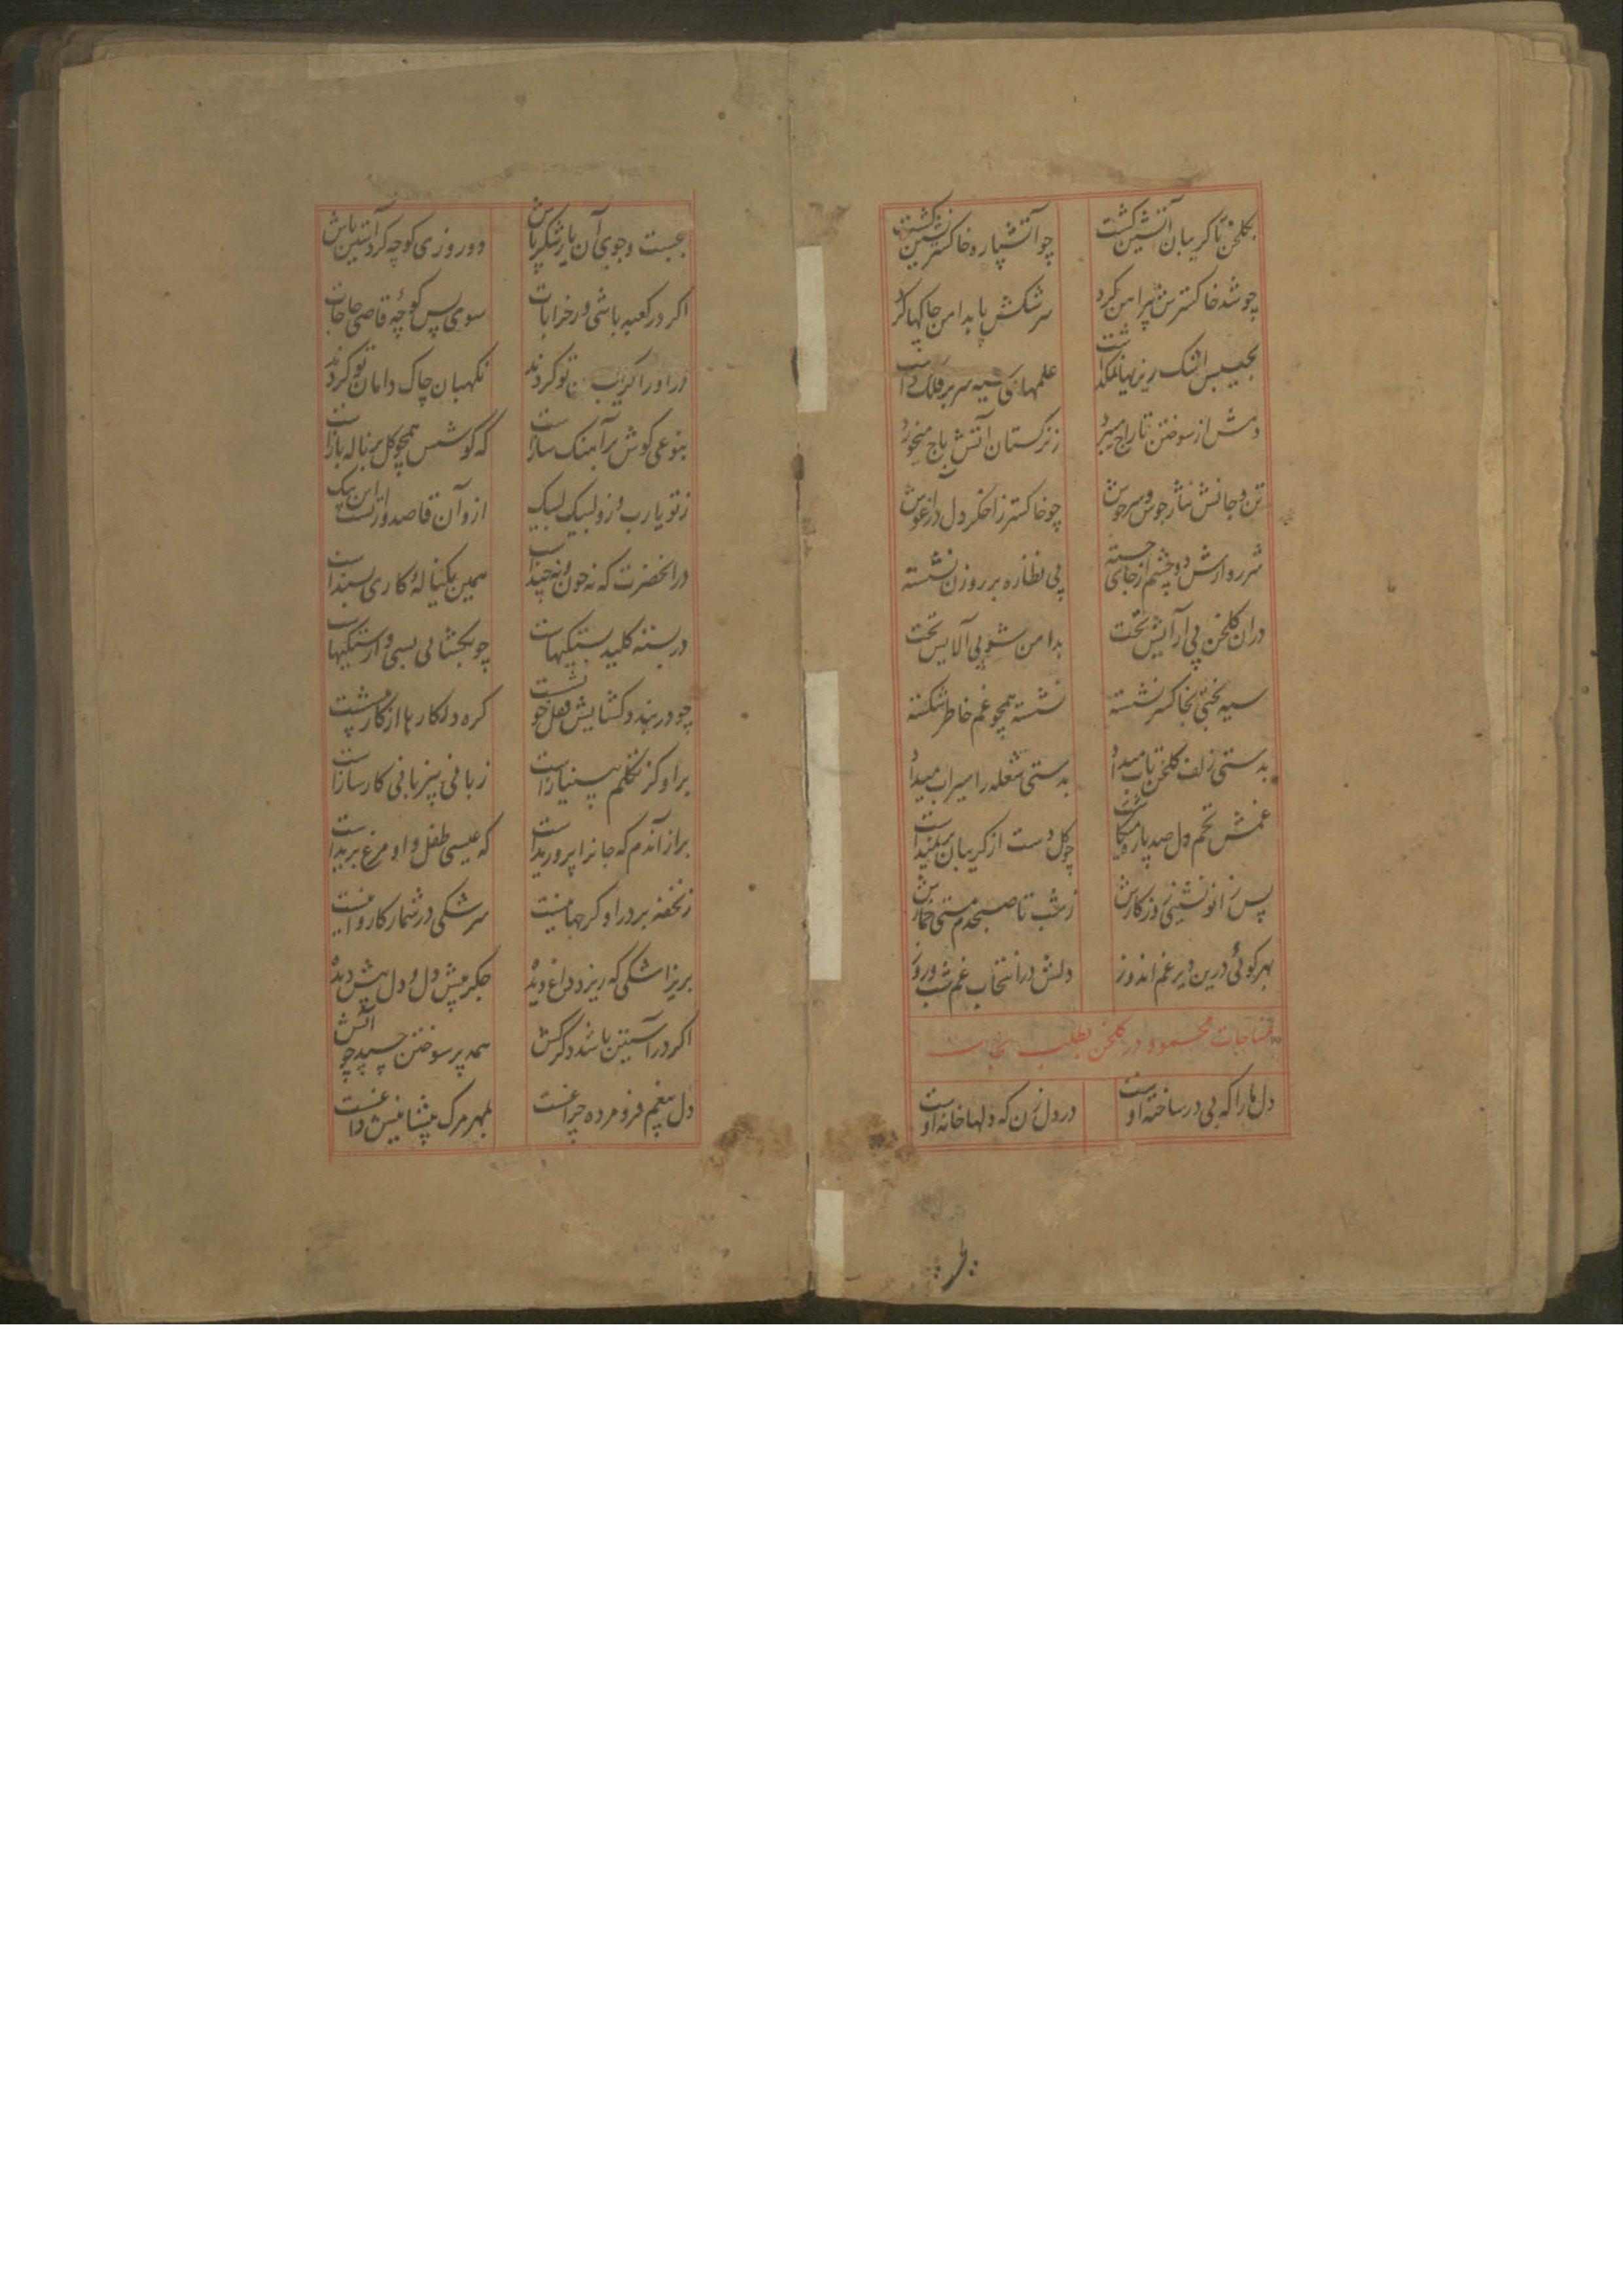 بکلخن تا کریبان آتشین کشت چو آتشپاره خاکستر نشین کشت
چو شد خاکسترش پیراهن کرد سرشکش پا بدامن چاکها کرد
بجیبش اشک ریزیها علمهای سیه سر بر فلک داشت
دمش از سوختن تاراج میبرد ز ترکستان آتش باج میخورد
تن و جانش نثار جوش و سرجوش چو خاکستر ز اخکر دل در آغوش
شرر وارش دو چشم از جای جسته پی نظاره بر روزن نشسته
دران کلخن پی آرایش تخت بدامن شوی آلایش تخت
سیه بختی بخاکستر نشسته نشسته همچو غم خاطر شکسته
بدستی زلف کلخن تاب میداد بدستی شعله را سیراب میداد
غمش تخم دل صد پاره میکاشت چو کل دست از کریبان بر نمیداشت
پس زانو نشینی روز کارش ز شب تا صبحدم مستی خمارش
بهر کوئی درین دیر غم اندوز دلش در انتخاب غم شب و روز
مناجات محمود در کلخن بطلب نجات
دل ما را که بی در ساخته اوست در دل زن که دلها خانه اوست
بجست وجوی آن یار شکر پاش دو روزی کوچه کرد آستین باش
اکر در کعبه باشی ور خرابات سوی پس کوچه قاضی حاجات
در او را کریبان تو کردند نکهبان چاک دامان تو کردند
بنوعی کوش بر آهنک سازست که کوشش همچو کل بر ناله بازست
ز تو یارب و زو لبیک لبیک از و آن قاصد و از تست این پیک
در آنحضرت که نه چون و نه چندست همین یکناله کاری بسندست
در بسته کلید بستکیهاست چو بکشائی بسی وارستکیهاست
چو در بندد کشایش قفل کره در کارها از کار
بر او کز تکلم بی نیازست زبانی بیزبانی کارسازست
براز آندم که جانرا پروریدست که عیسی طفل و او مرغ پریدست
نخفته بر در او کر جهانیست سرشکی در شمار کاروانیست
بریز اشکی که ریزد داغ دیده جکر پیش دل و دل پیش دیده
اکر در آستین باشد دکر کش همه پر سوختن چسپد چو آتش
دل بیغم فرو مرده چراغست بمهر مرک پیشانیش داغست